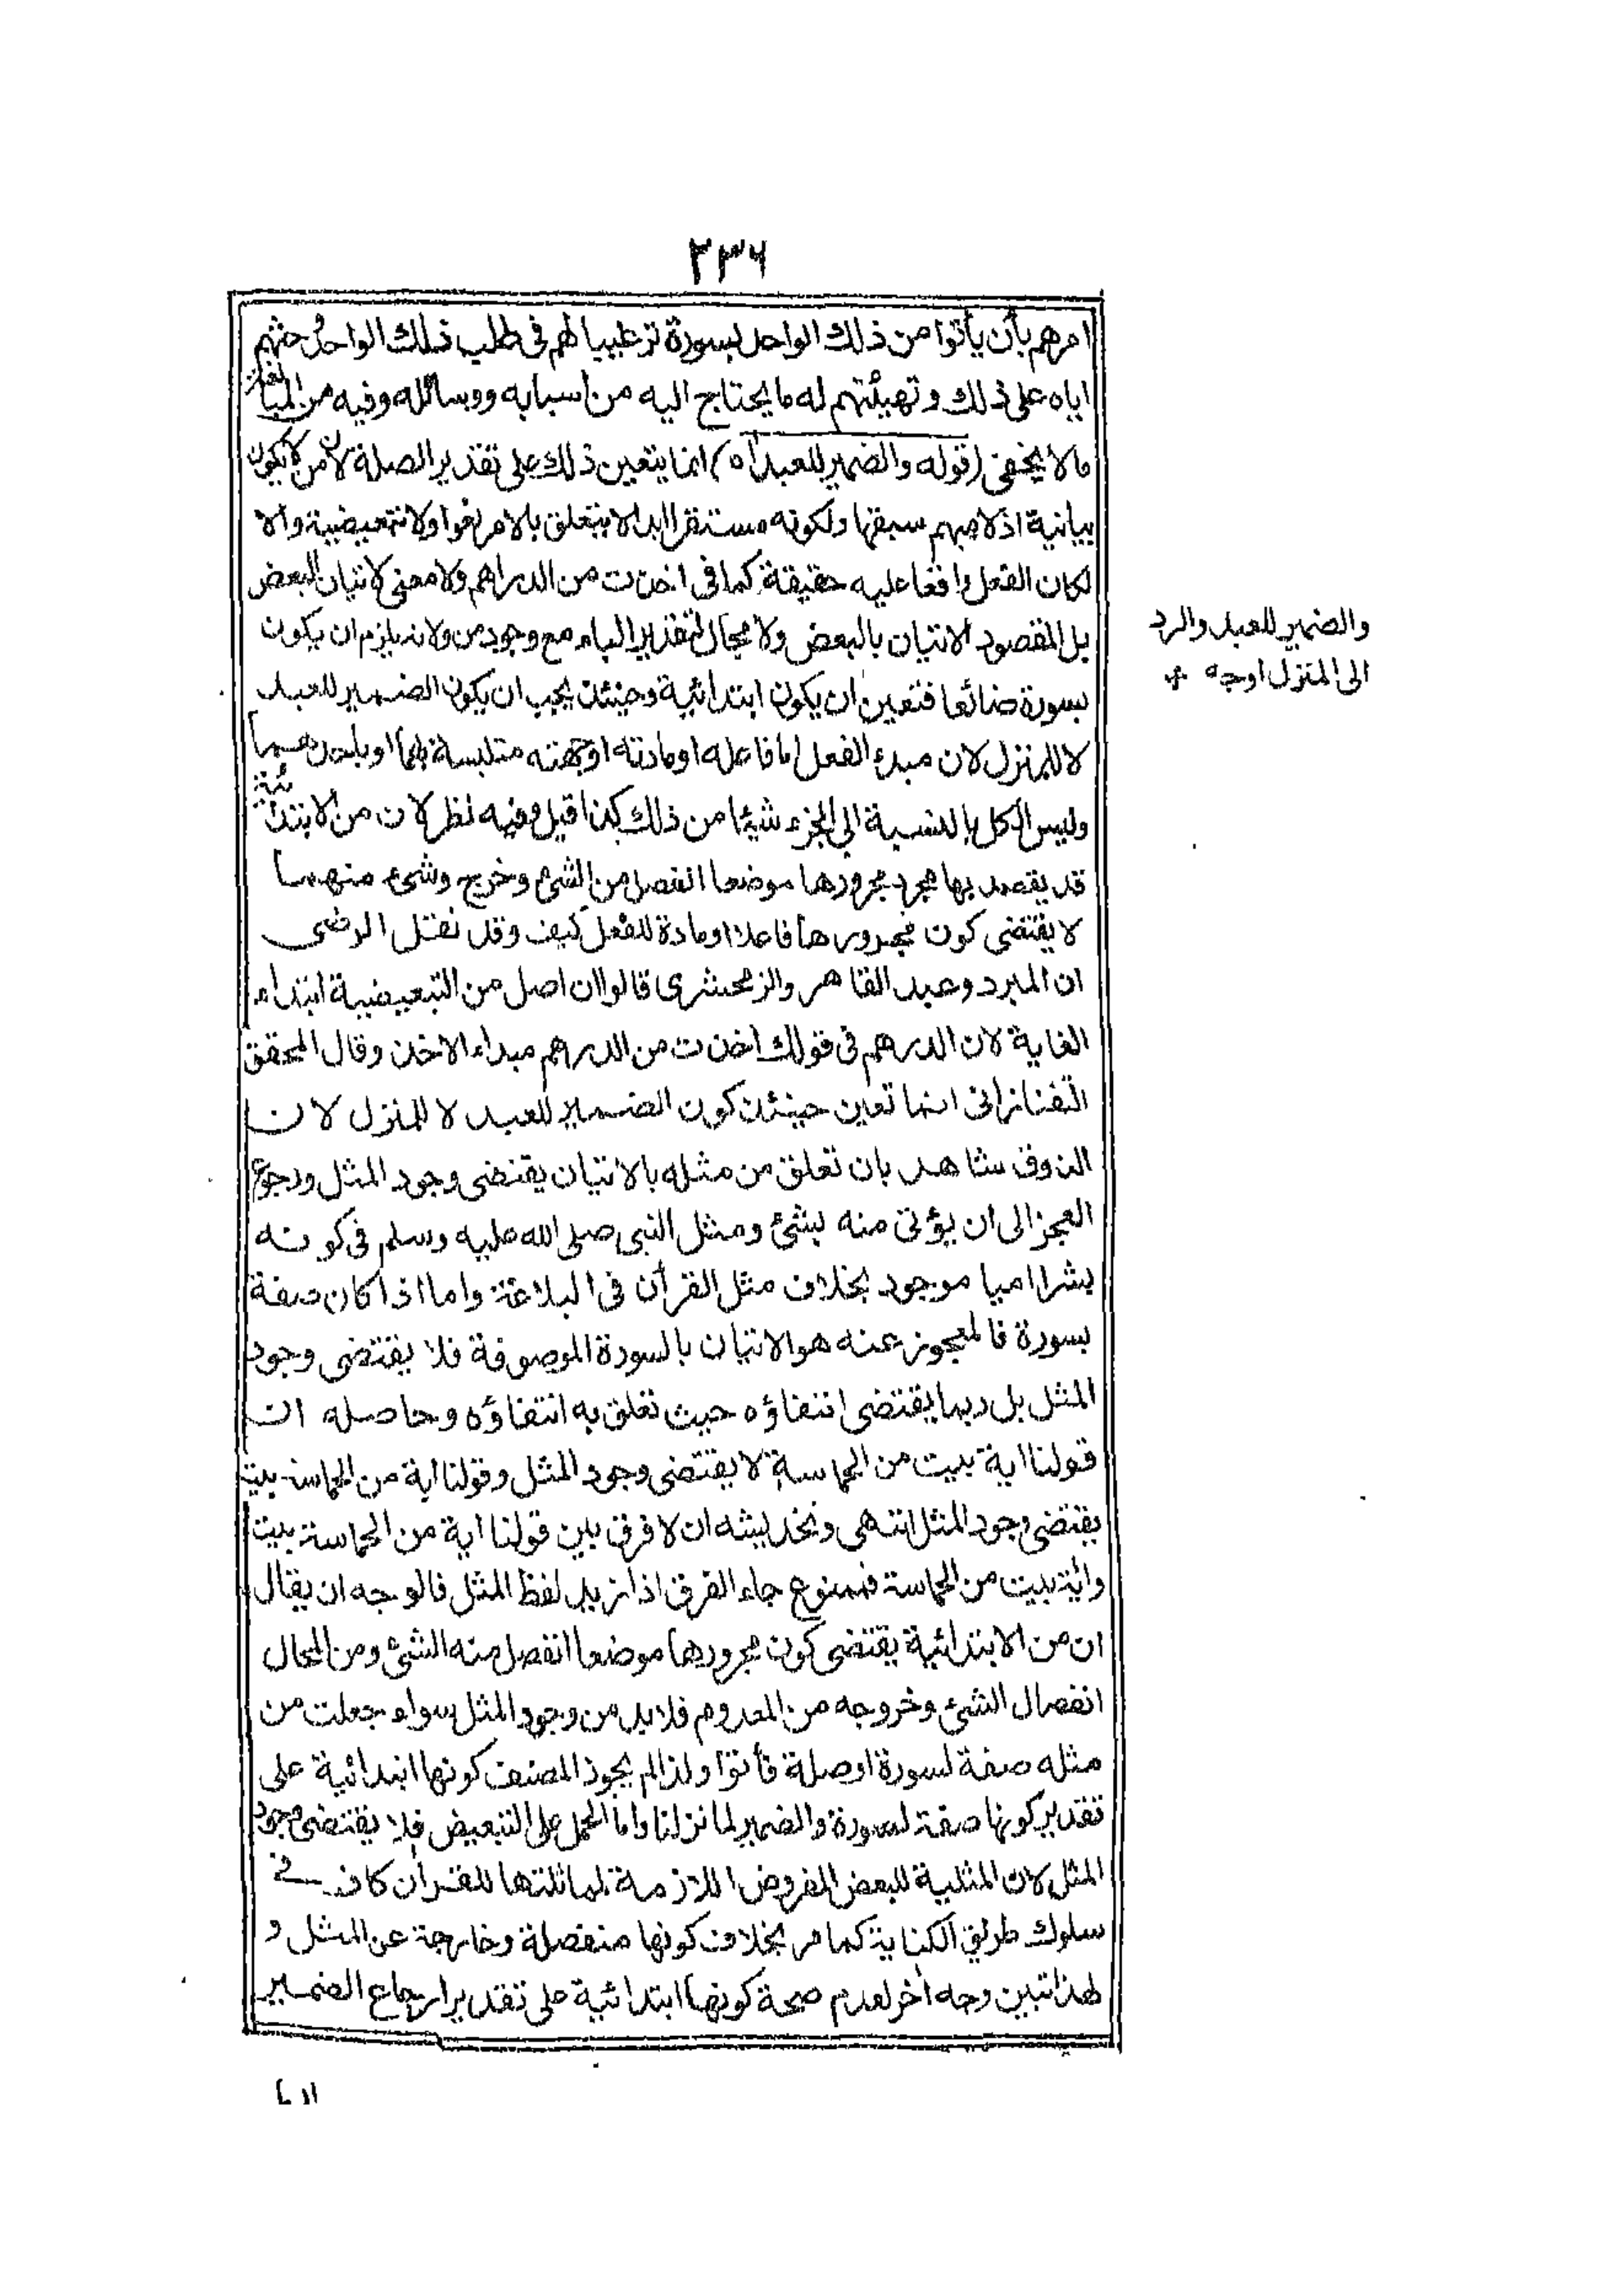 ٢٣٦
امرهم بأن يأتوا من ذلك الواحد بسورة ترغيبا لهم في طلب ذلك الواحد وحثهم
اياه على ذلك وتهيئتهم له ما يحتاج اليه من اسبابه ووسائله وفيه من المبالغة
ما لا يخفى (قوله والضمير للعبد اه) انما يتعين ذلك على تقدير الصلة لان من لا يكون
بيانية اذ لا مبهم سبقها ولكونه مستقرا ابدا لا يتعلق بالامر لغوا ولا تبعيضية والا
لكان الفعل واقعا عليه حقيقة كما في اخذت من الدراهم ولا معنى لاتيان البعض
بل المقصود الاتيان بالبعض ولا مجال لتقدير الباء مع وجود من ولانه يلزم ان يكون
بسورة ضائعا فتعين ان يكون ابتدائية وحينئذ يجب ان يكون الضمير للعبد
لا للمنزل لان مبدء الفعل اما فاعله او مادته او جهته متلبسة بهما او باحدهما
وليس الكل بالنسبة الى الجزء شيئا من ذلك كذا قيل وفيه نظر لان من الابتدائية
قد يقصد بها مجرد مجرورها موضعا انفصل من الشئ وخرج وشئ منهما
لا يقتضى كون مجرورها فاعلا او مادة للفعل كيف وقد نقل الرضى
ان المبرد وعبد القاهر والزمخشرى قالوا ان اصل من التبعيضية ابتداء
الغاية لان الدرهم في قولك اخذت من الدرهم مبداء الاخذ وقال المحقق
التفتازانى انما تعين حينئذ كون الضمير للعبد لا للمنزل لان
الذوق شاهد بان تعلق من مثله بالاتيان يقتضى وجود المثل ورجوع
العجز الى ان يؤتى منه بشئ ومثل النبى صلى الله عليه وسلم في كونه
بشرا اميا موجود بخلاف مثل القرآن في البلاغة واما اذا كان صفة
بسورة فالمعجوز عنه هو الاتيان بالسورة الموصوفة فلا يقتضى وجود
المثل بل ربما يقتضى انتفاؤه حيث تعلق به انتفاؤه وحاصله ان
قولنا اية ببيت من الحماسة لا يقتضى وجود المثل وقولنا اية من الحماسة ببيت
يقتضى وجود المثل انتهى ونخدشه ان لا فرق بين قولنا اية من الحماسة ببيت
وائية ببيت من الحماسة فممنوع جاء الفرق اذا زيد لفظ المثل فالوجه ان يقال
ان من الابتدائية يقتضى كون مجرورها موضعا انفصل منه الشئ ومن المحال
انفصال الشئ وخروجه من المعدوم فلابد من وجود المثل سواء جعلت من
مثله صفة لسورة او صلة فأتوا ولذا لم يجوز المصنف كونها ابتدائية على
تقدير كونها صفة لسورة والضمير لما نزلنا واما الحمل على التبعيض فلا يقتضى وجود
المثل لان المثلية للبعض المفروض اللازمة لمماثلتها للقرآن كاف في
سلوك طريق الكناية كما مر بخلاف كونها منفصلة وخارجة عن المثل و
لهذا تبين وجه آخر لعدم صحة كونها ابتدائية على تقدير ارجاع الضمير
والضمير للعبد والرد
الى المنزل اوجه